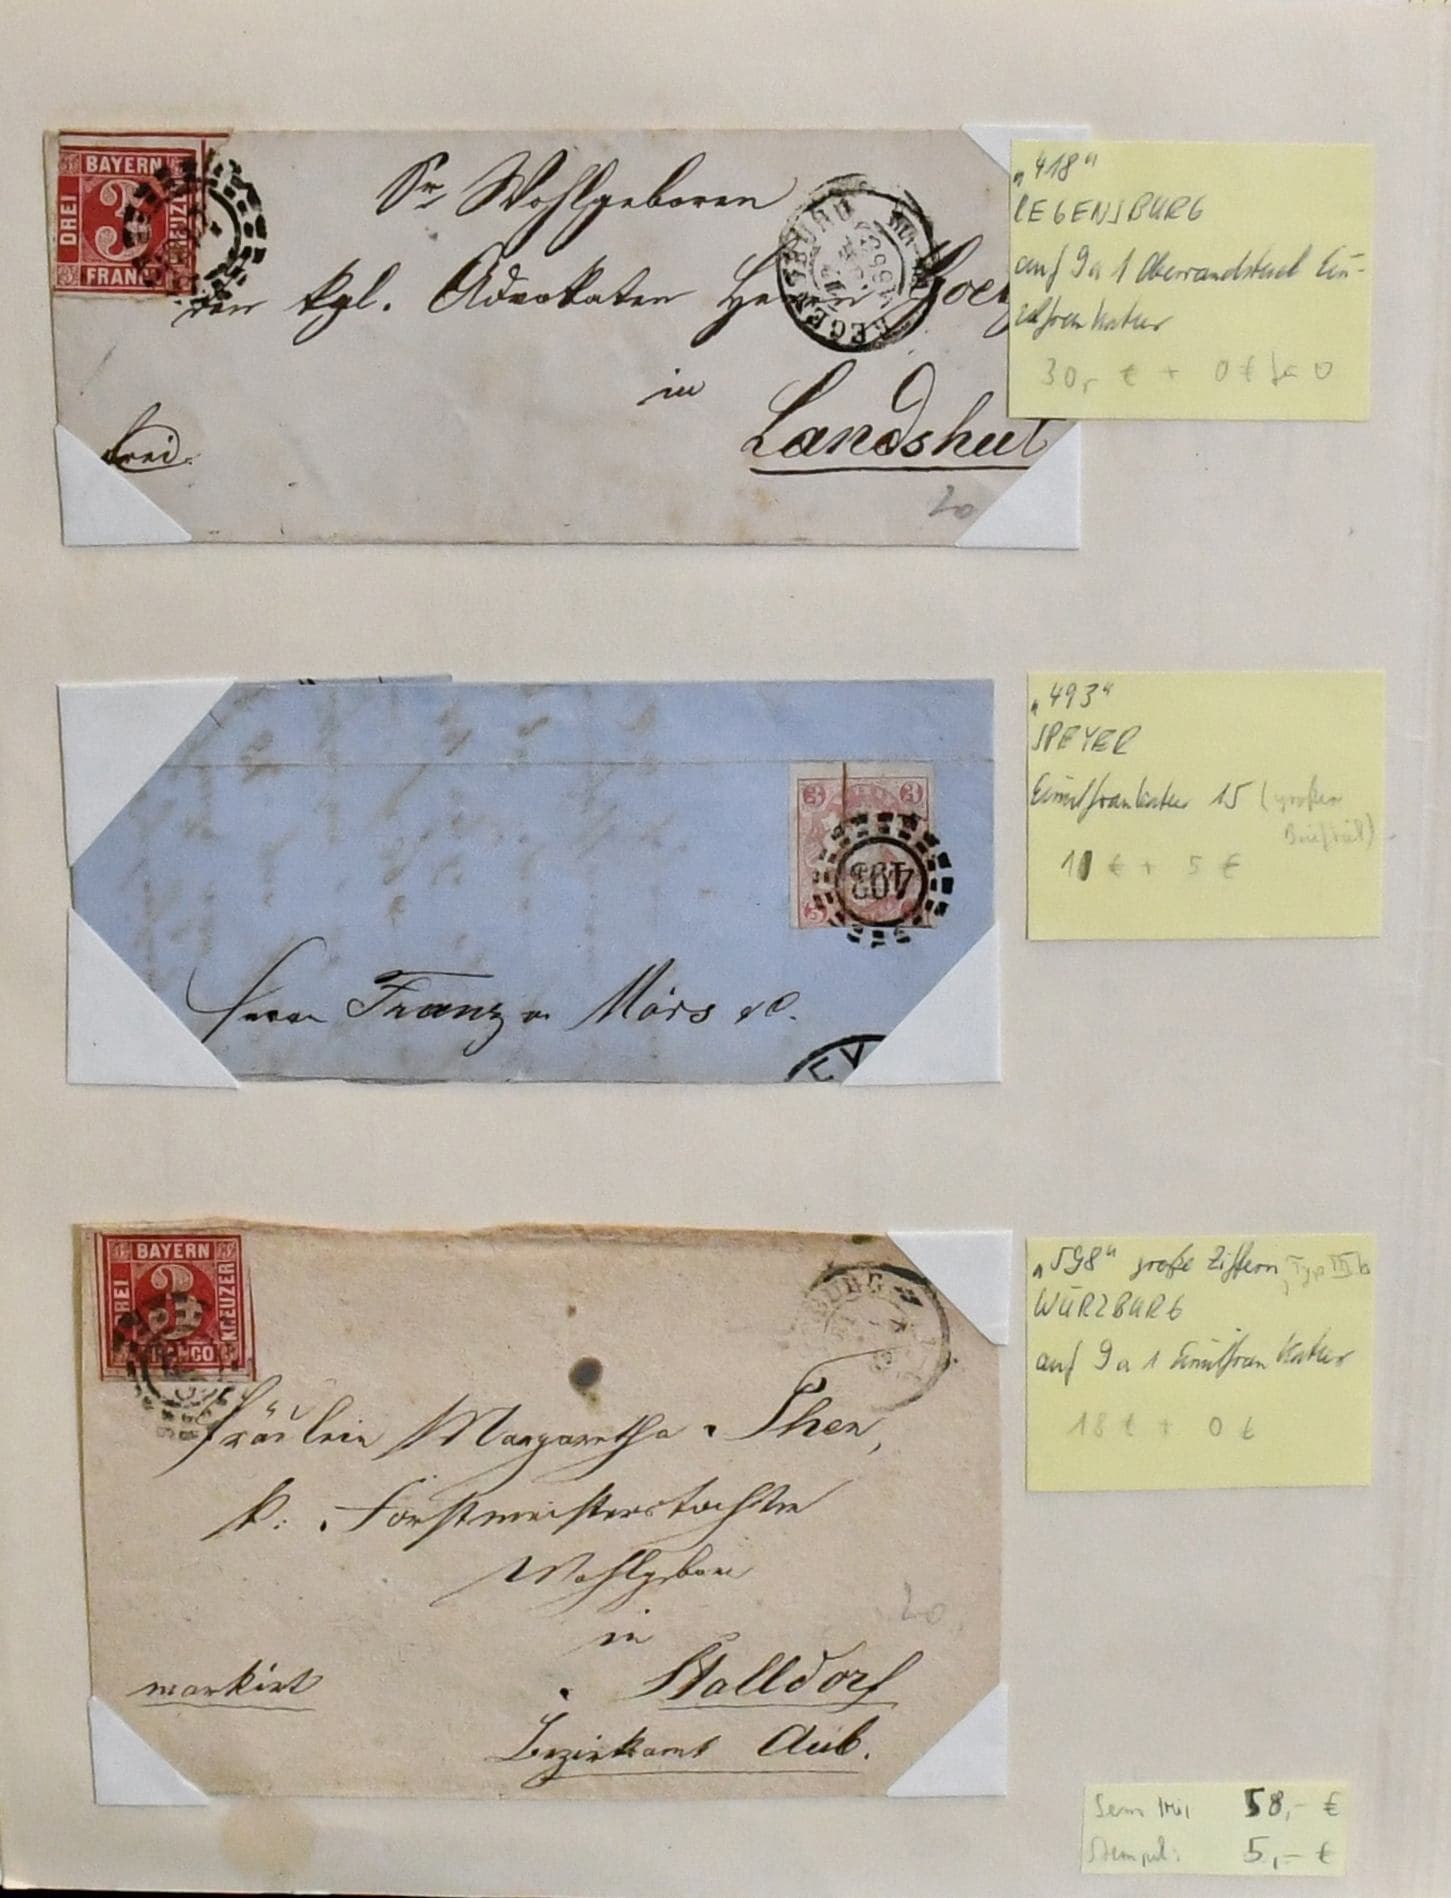 BAYERN
DREI
3
KREUZER
FRANCO
Sr. Wohlgeboren
kgl. Advokaten Herrn
in
Landshut
frei.
REGENSBURG
20
„418“
REGENSBURG
auf 9a 1 Oberrandstück Ein-
zelfrankatur
30,- € + 0 €
3 3
3
493
Herrn Franz v. Mörs &C.
EY
„493“
SPEYER
Einzelfrankatur 15 (großer
Briefteil)
€ + 5 €
BAYERN
DREI
3
KREUZER
FRANCO
Fräulein Margaretha Then,
k. Forstmeisterstochter
Wohlgeboren
in
Stalldorf
markirt
Bezirksamt Aub.
20
„598“ große Ziffern, Typ III b
WÜRZBURG
auf 9a 1 Einzelfrankatur
18 € + 0 €
58,- €
Stempel: 5,- €